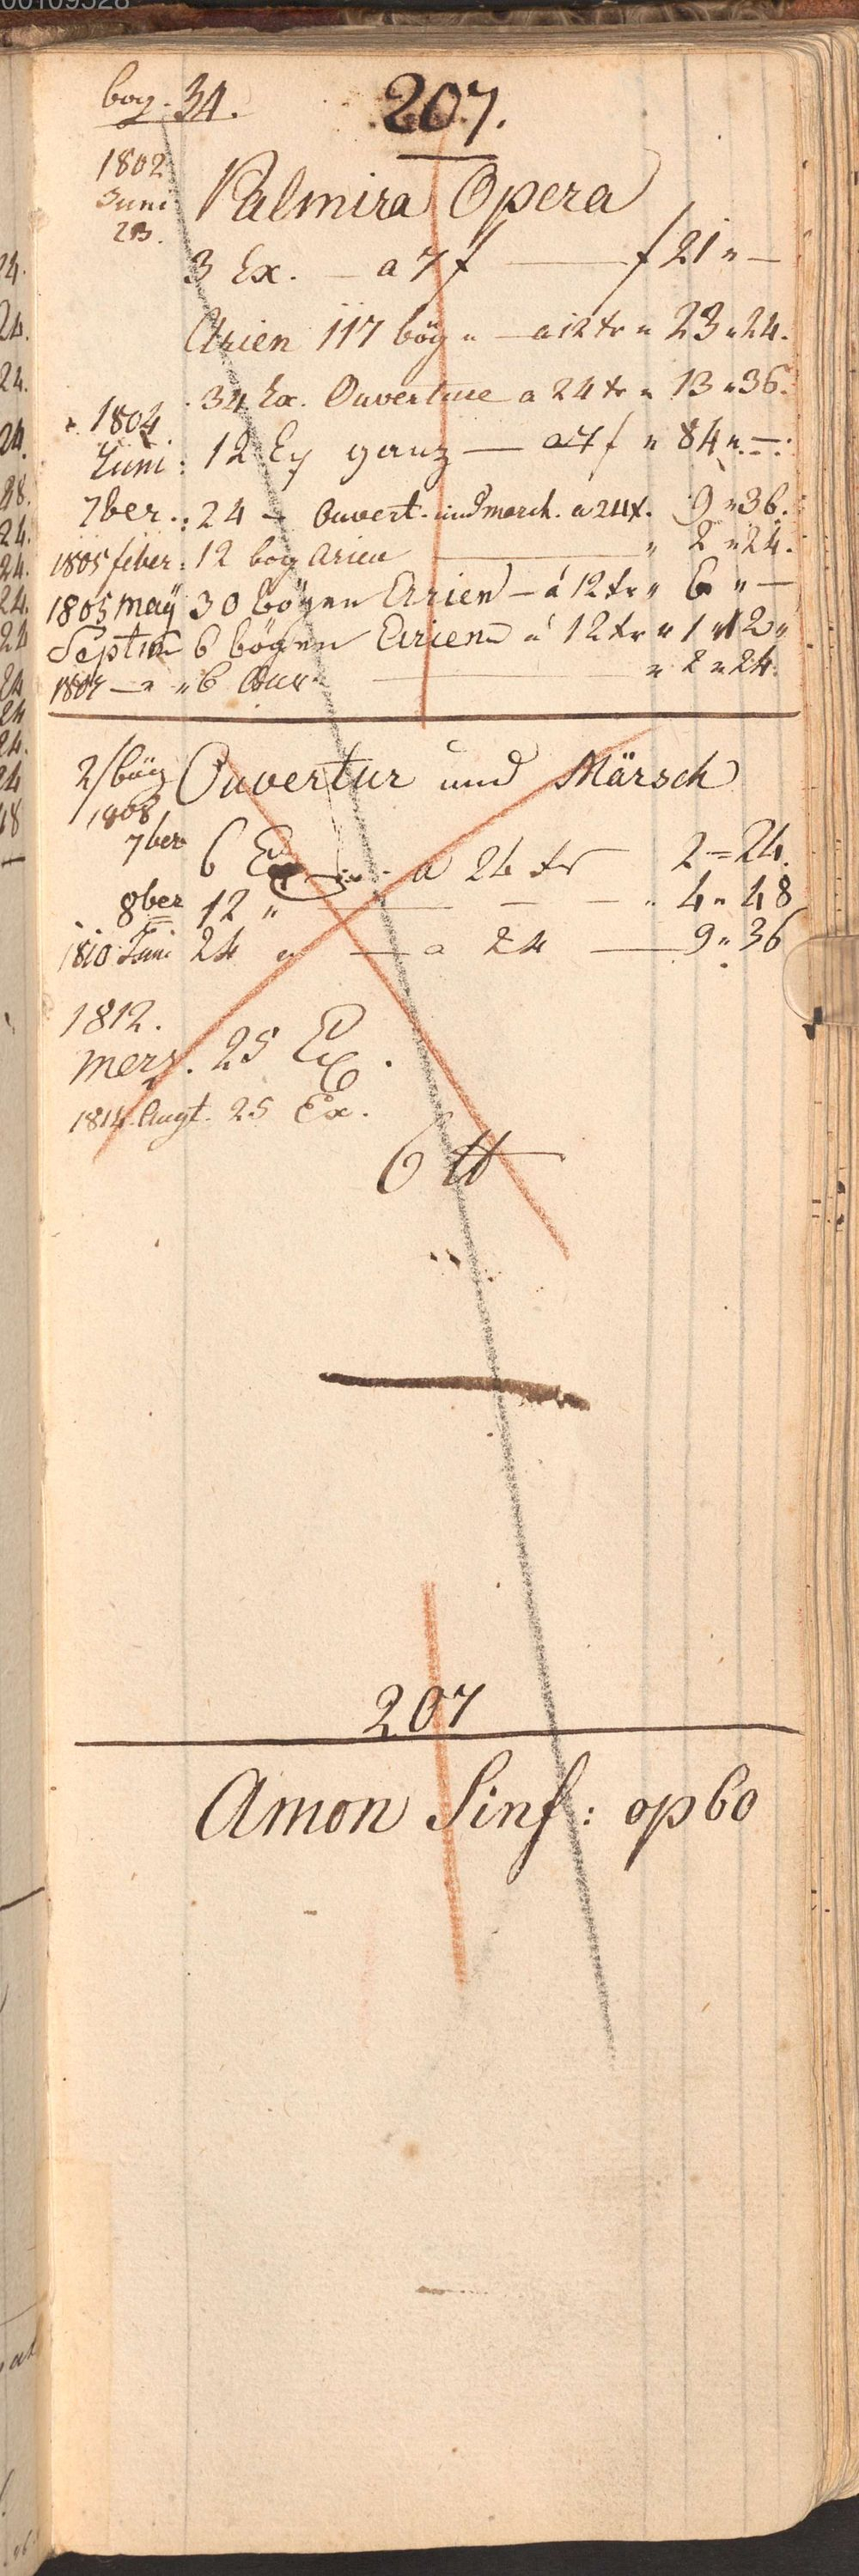 00109528
bog. 34. 207.
1802 Juni 23. Palmira Opera
3 Ex. — a 7 f — f 21 " —
Arien 117 bög " — a 12 xr " 23 " 24.
34 Ex. Ouverture a 24 xr " 13 " 36.
1804 Juni: 12 Ex ganz — a 7 f " 84 " —:
7ber.: 24 — Ouvert. und march. a 24 x. 9 " 36.
1805 feber: 12 bog Arien — " 2 " 24.
1805 maÿ 30 bögen Arien — à 12 xr " 6 " —
Septm 6 bögen Arien à 12 xr " 1 " 12 "
1807 — " " 6 Ouv. — " 2 " 24.
2/bög Ouvertur und Märsch
1808
7ber 6 Ex a 24 xr 2 = 24.
8ber 12 " — — — " 4 " 48
1810 Juni 24 " — a 24 — 9 " 36
1812.
merz. 25 Ex.
1814 Augt. 25 Ex.
6 tt
207
Amon Sinf: op 60